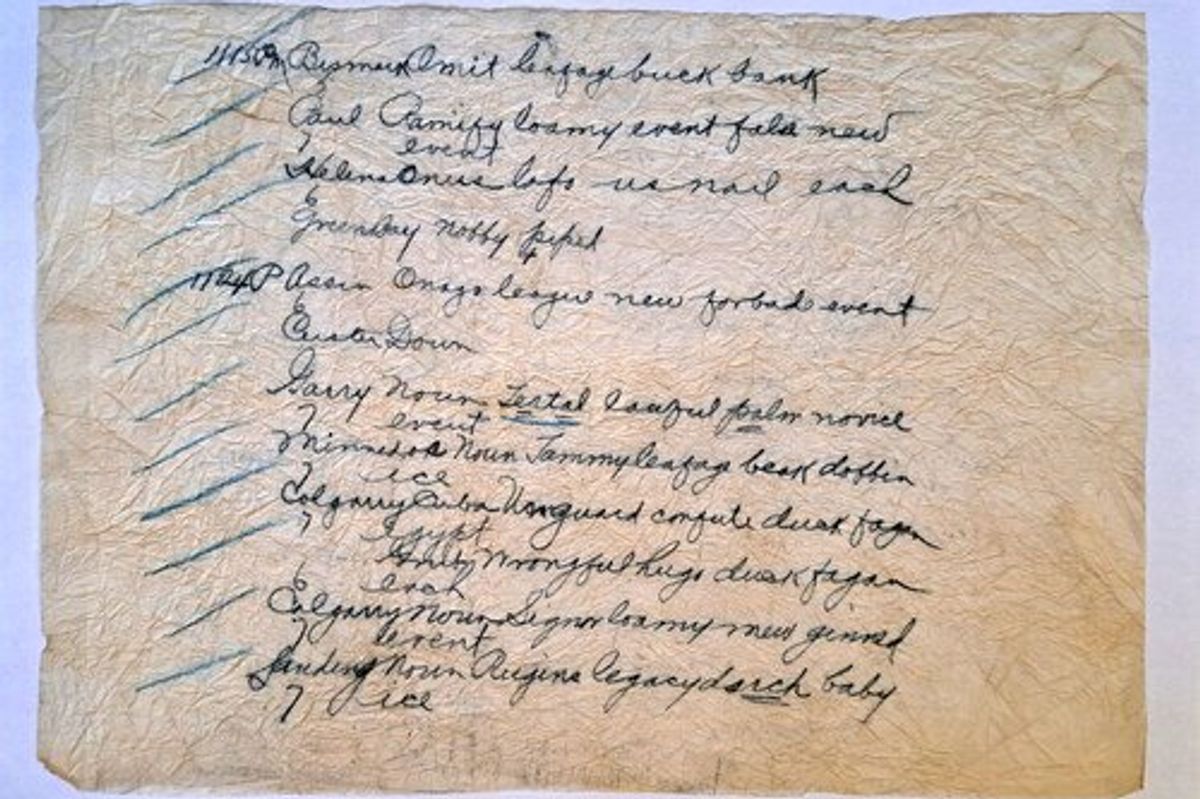 1115 Pm Bismark Omit leafage buck bank
Paul Ramify loamy event false new
event
Helena Onus lofo us nail each
Greenbay nobby piped
1124 P Assin Onago league new forbade event
Custer Down
Garry Noun Tertal lawful palm novice
event
Minnedos Noun Jammy leafage beak dobbin
ice
Calgarry Cuba Unguard confute duck fagan
Egypt
Wrongful hugs duck fagan
each
Calgarry Noun Signor loamy new ginned
event
Landing Noun Rugins legacy dsrch baby
ice